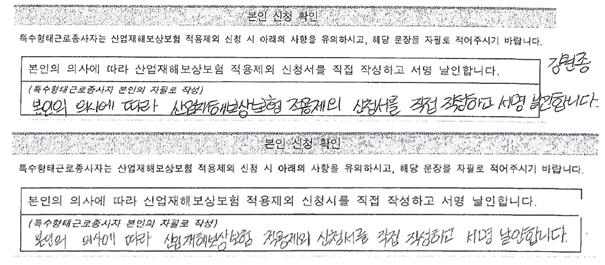 본인 신청 확인
특수형태근로종사자는 산업재해보상보험 적용제외 신청 시 아래의 사항을 유의하시고, 해당 문장을 자필로 적어주시기 바랍니다.
본인의 의사에 따라 산업재해보상보험 적용제외 신청서를 직접 작성하고 서명 날인합니다.
(특수형태근로종사자 본인의 자필로 작성)
본인의 의사에 따라 산업재해보상보험 적용제외 신청서를 직접 작성하고 서명 날인합니다.
본인 신청 확인
특수형태근로종사자는 산업재해보상보험 적용제외 신청 시 아래의 사항을 유의하시고, 해당 문장을 자필로 적어주시기 바랍니다.
본인의 의사에 따라 산업재해보상보험 적용제외 신청서를 직접 작성하고 서명 날인합니다.
(특수형태근로종사자 본인의 자필로 작성)
본인의 의사에 따라 산업재해보상보험 적용제외 신청서를 직접 작성하고 서명 날인합니다.